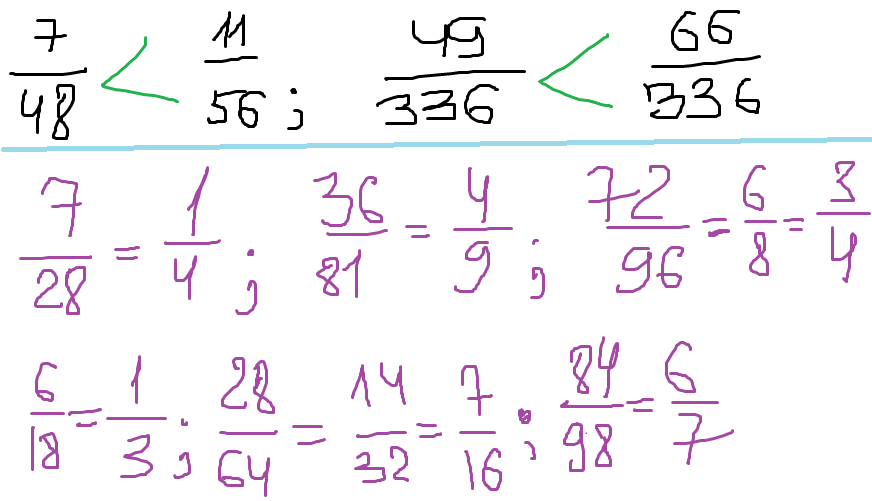 7/48 < 11/56; 49/336 < 66/336
7/28 = 1/4; 36/81 = 4/9; 72/96 = 6/8 = 3/4
6/18 = 1/3; 28/64 = 14/32 = 7/16; 84/98 = 6/7